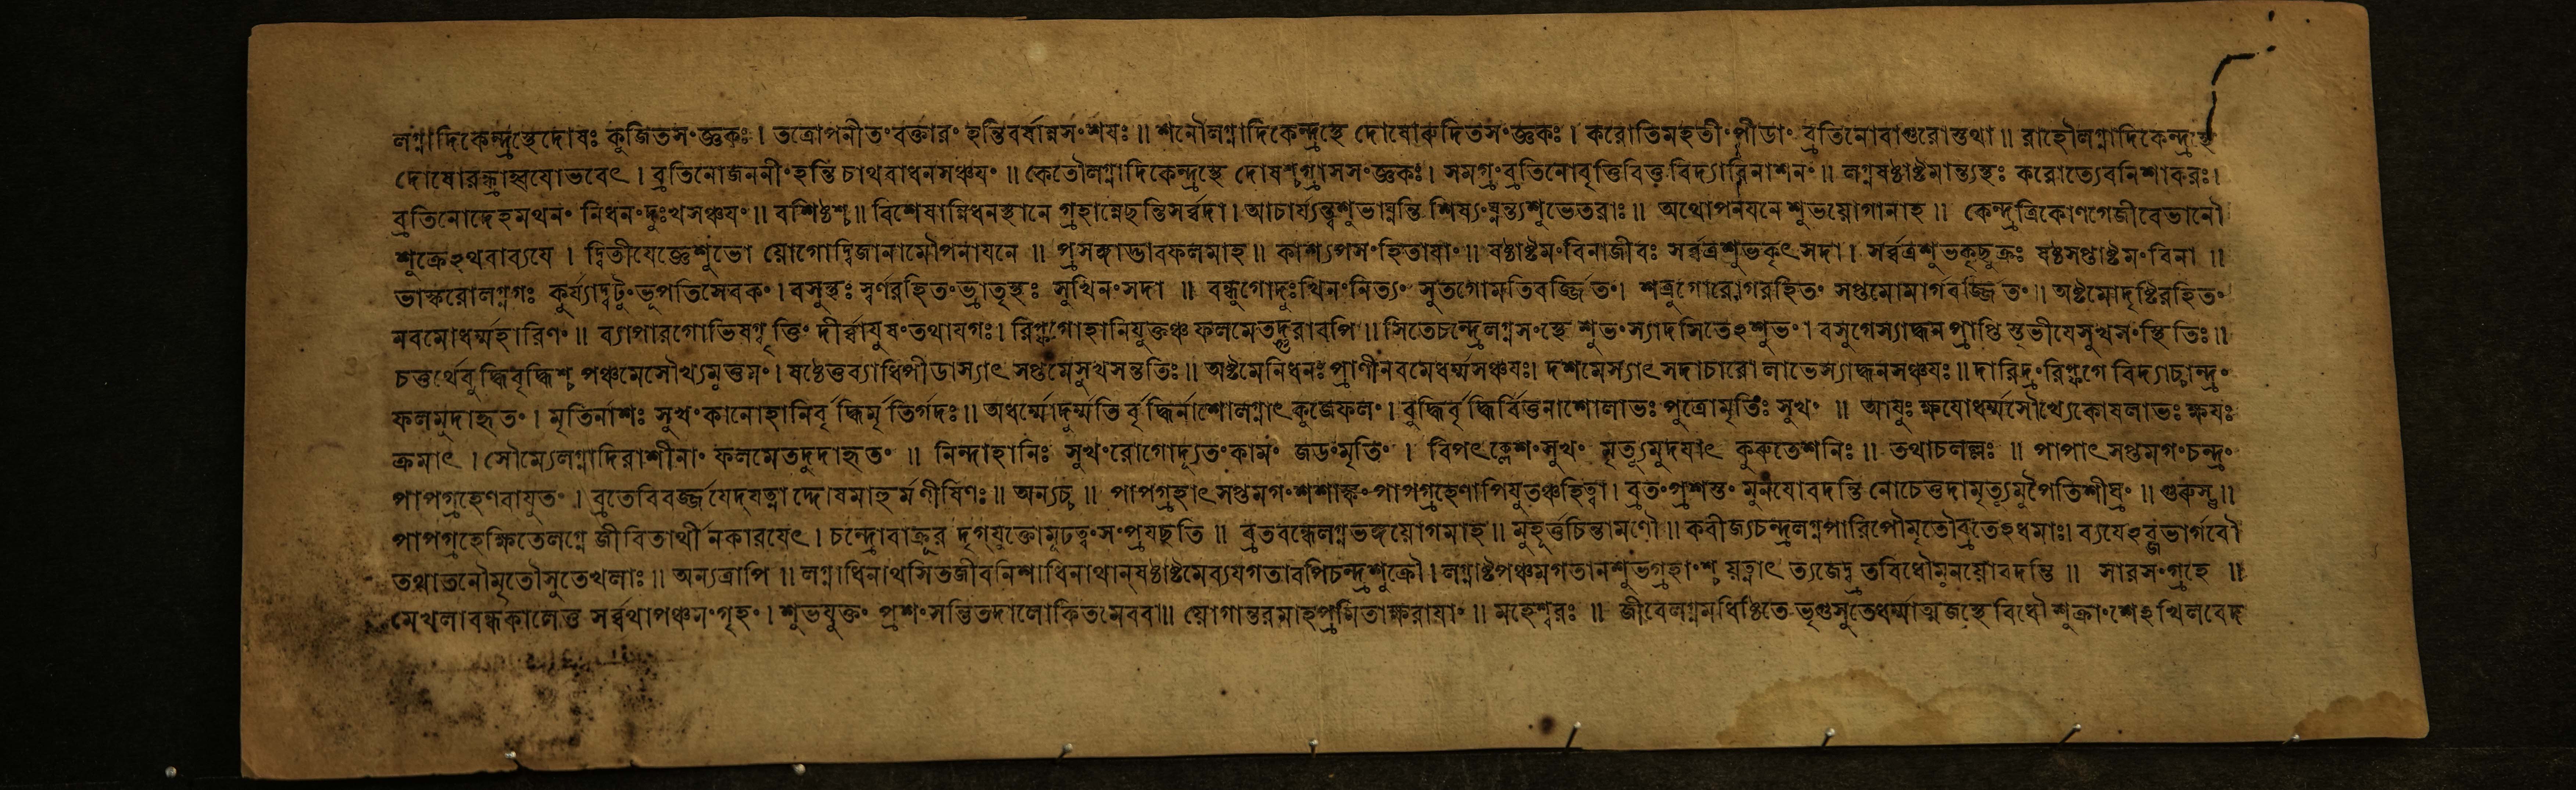 লগ্নাদিকেন্দ্রস্থেদোষঃ কূজিতস৹জ্ঞকঃ । তত্রোপনীত৹বক্তার৹ হন্তিবর্ষান্নস৹শযঃ ॥ শনৌলগ্নাদিকেন্দ্রস্থে দোষোৰুদিতস৹জ্ঞকঃ । করোতিমহতী৹পীডা৹ ব্রতিনোবাগুরোস্তথা ॥ রাহৌলগ্নাদিকেন্দ্রস্থে
দোষোরন্ধ্রাহ্বযোভবেৎ । ব্রতিনোজননী৹হন্তি চাথবাধনসঞ্চয৹ ॥ কেতৌলগ্নাদিকেন্দ্রস্থে দোষশ্চগ্রাসস৹জ্ঞকঃ । সমগ্র৹ব্রতিনোবৃত্তিবিত্তবিদ্যাবিনাশন৹ ॥ লগ্নষষ্ঠাষ্টমান্ত্যস্থঃ করোত্যেবনিশাকরঃ ।
ব্রতিনোদেহমথন৹ নিধন৹দুঃখসঞ্চয৹ ॥ বশিষ্ঠশ্চ ॥ বিশেষান্নিধনস্থানে গ্রহান্নেছন্তিসর্ব্বদা । আচার্য্যন্তুশুভাঘ্নন্তি শিষ্য৹ঘ্নন্ত্যশুভেতরাঃ ॥ অথোপনযনে শুভয়োগানাহ ॥ কেন্দ্রত্রিকোণগেজীবেভানৌ
শুক্রেঽথবাব্যযে । দ্বিতীযেজ্ঞেশুভো য়োগোদ্বিজানামৌপনাযনে ॥ প্রসঙ্গাদ্ভাবফলমাহ ॥ কাশ্যপস৹হিতাযা৹ ॥ ষষ্ঠাষ্টম৹বিনাজীবঃ সর্ব্বত্রশুভকৃৎসদা । সর্ব্বত্রশুভকৃছুক্রঃ ষষ্ঠসপ্তাষ্টম৹বিনা ॥
ভাস্করোলগ্নগঃ কুর্য্যাদ্বটু৹ভূপতিসেবক৹ । বসুস্থঃ স্বর্ণরহিত৹ভ্রাতৃস্থঃ সুখিন৹সদা ॥ বন্ধুগোদুঃখিন৹নিত্য৹ সুতগোমতিবর্জ্জিত৹ । শত্রুগোরোগরহিত৹ সপ্তমোমার্গবর্জ্জিত৹ ॥ অষ্টমোদৃষ্টিরহিত৹
নবমোধর্ম্মহারিণ৹ ॥ ব্যাপারগোভিষগ্বৃত্তি৹ দীর্ঘাযুষ৹তথাযগঃ । রিপ্ফগোহানিযুক্তঞ্চ ফলমেতদ্গুরাবপি ॥ সিতেচন্দ্রেলগ্নস৹স্থে শুভ৹স্যাদসিতেঽশুভ৹ । বসুগেস্যাদ্ধনপ্রাপ্তি স্তৃতীযেসুখস৹স্থিতিঃ ॥
চতুর্থেবুদ্ধিবৃদ্ধিশ্চ পঞ্চমেসৌখ্যমুত্তম৹ । ষষ্ঠেতুব্যাধিপীডাস্যাৎ সপ্তমেসুখসন্ততিঃ ॥ অষ্টমেনিধনঃপ্রাণীনবমেধর্ম্মসঞ্চযঃ । দশমেস্যাৎসদাচারো লাভেস্যাদ্ধনসঞ্চযঃ ॥ দারিদ্র৹রিপ্ফগে বিদ্যাচ্চান্দ্র৹
ফলমুদাহৃত৹ । মৃতির্নাশঃ সুখ৹কানোহানির্বৃদ্ধির্মৃতির্গদঃ ॥ অধর্ম্মোদুর্ম্মতি র্বৃদ্ধির্নাশোলগ্নাৎ কুজেফল৹ । বুদ্ধির্বৃদ্ধির্বিত্তনাশোলাভঃ পুত্রোমৃতিঃ সুখ৹ ॥ আযুঃ ক্ষযোধর্ম্মসৌখ্যেকোষলাভঃ ক্ষযঃ
ক্রমাৎ । সৌম্যেলগ্নাদিরাশীনা৹ ফলমেতদুদাহৃত৹ ॥ নিন্দাহানিঃ সুখ৹রোগোদ্যূত৹কাম৹ জড৹মৃতি৹ । বিপৎক্লেশ৹সুখ৹ মৃত্যুমুদযাৎ কুৰুতেশনিঃ ॥ তথাচলল্লঃ ॥ পাপাৎসপ্তমগ৹চন্দ্র৹
পাপগ্রহেণবাযুত৹ । ব্রতেবিবর্জ্জযেদ্যত্নাদ্দোষমাহুর্মণীষিণঃ ॥ অন্যচ্চ ॥ পাপগ্রহাৎসপ্তমগ৹শশাঙ্ক৹পাপগ্রহেণাপিযুতঞ্চহিত্বা । ব্রত৹প্রশস্ত৹ মুনযোবদন্তি নোচেত্তদামৃত্যুমুপৈতিশীঘ্র৹ ॥ গুৰুস্তু ॥
পাপগ্রহেক্ষিতেলগ্নে জীবিতার্থীনকারযেৎ । চন্দ্রোবাক্রূর দৃগ্যুক্তোমূঢত্ব৹স৹প্রযছতি ॥ ব্রতবন্ধেলগ্নভঙ্গয়োগমাহ ॥ মুহূর্ত্তচিন্তামণৌ ॥ কবীজ্যচন্দ্রলগ্নপারিপৌমৃতৌব্রতেঽধমাঃ । ব্যযেঽব্জভার্গবৌ
তথাতনৌমৃতৌসুতেখলাঃ ॥ অন্যত্রাপি ॥ লগ্নাধিনাথসিতজীবনিশাধিনাথান্ষষ্ঠাষ্টমেব্যযগতাবপিচন্দ্রশুক্রৌ । লগ্নাষ্টপঞ্চমগতানশুভগ্রহা৹শ্চ য়ত্নাৎ ত্যজেদ্ব্রতবিধৌমুনয়োবদন্তি ॥ সারস৹গ্রহে ॥
মেখলাবন্ধকালেতু সর্ব্বথাপঞ্চম৹গৃহ৹ । শুভযুক্ত৹ প্রশ৹সন্তিতদালোকিতমেববা ॥ য়োগান্তরমাহপ্রমিতাক্ষরাযা৹ ॥ মহেশ্বরঃ ॥ জীবেলগ্নমধিষ্ঠিতে ভৃগুসুতেধর্ম্মাত্মজস্থে বিধৌ শুক্রা৹শেঽখিলবেদ